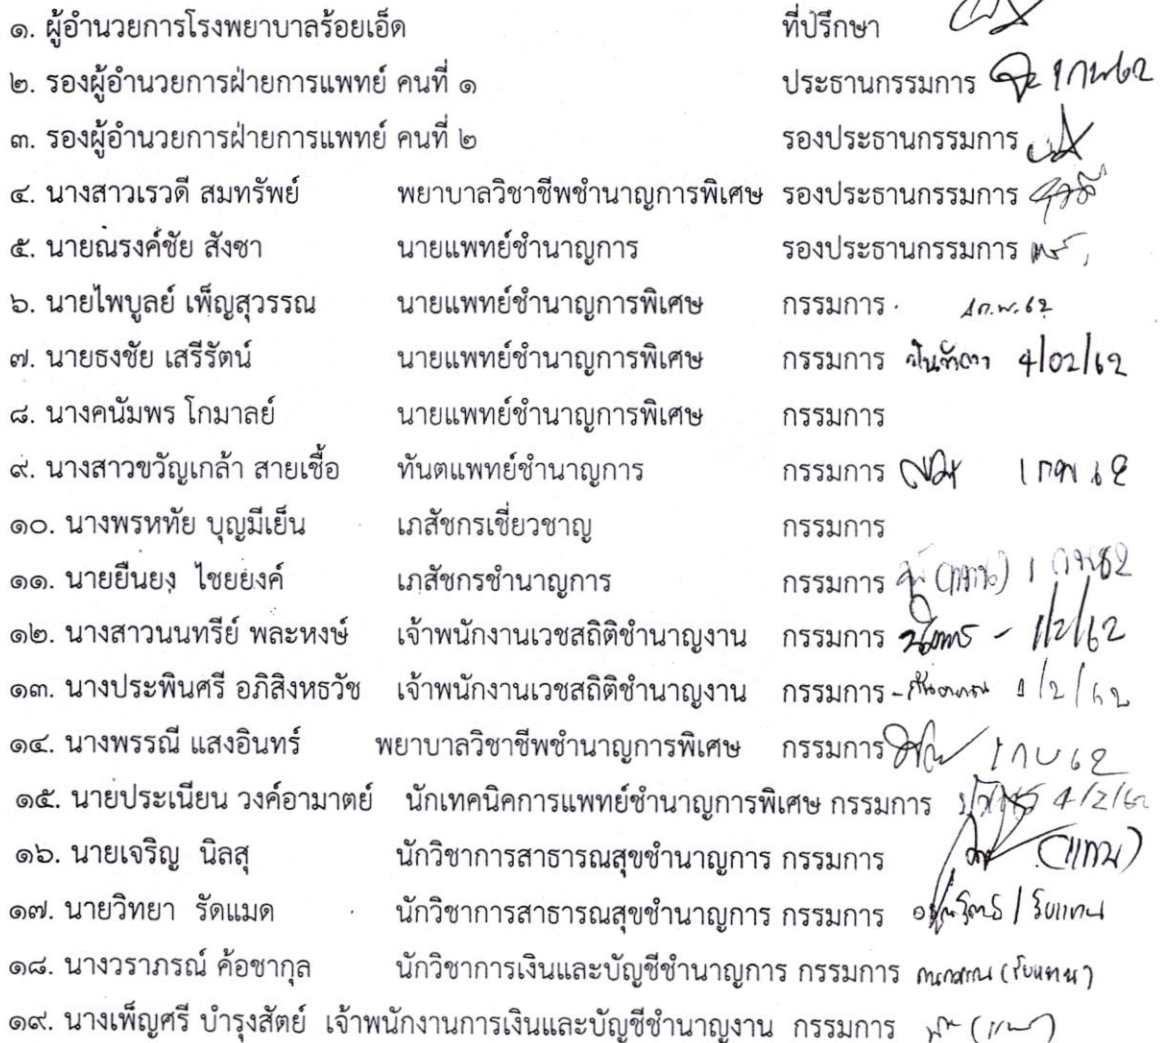 ๑. ผู้อำนวยการโรงพยาบาลร้อยเอ็ด ที่ปรึกษา
๒. รองผู้อำนวยการฝ่ายการแพทย์ คนที่ ๑ ประธานกรรมการ ๑ กพ ๖๒
๓. รองผู้อำนวยการฝ่ายการแพทย์ คนที่ ๒ รองประธานกรรมการ
๔. นางสาวเรวดี สมทรัพย์ พยาบาลวิชาชีพชำนาญการพิเศษ รองประธานกรรมการ
๕. นายณรงค์ชัย สังซา นายแพทย์ชำนาญการ รองประธานกรรมการ
๖. นายไพบูลย์ เพ็ญสุวรรณ นายแพทย์ชำนาญการพิเศษ กรรมการ 1 ก.พ. 62
๗. นายธงชัย เสรีรัตน์ นายแพทย์ชำนาญการพิเศษ กรรมการ 4/02/62
๘. นางคนัมพร โกมาลย์ นายแพทย์ชำนาญการพิเศษ กรรมการ
๙. นางสาวขวัญเกล้า สายเชื้อ ทันตแพทย์ชำนาญการ กรรมการ 1 กพ 62
๑๐. นางพรหทัย บุญมีเย็น เภสัชกรเชี่ยวชาญ กรรมการ
๑๑. นายยืนยง ไชยยงค์ เภสัชกรชำนาญการ กรรมการ
๑๒. นางสาวนนทรีย์ พละหงษ์ เจ้าพนักงานเวชสถิติชำนาญงาน กรรมการ - 1/2/62
๑๓. นางประพินศรี อภิสิงหธวัช เจ้าพนักงานเวชสถิติชำนาญงาน กรรมการ 1/2/62
๑๔. นางพรรณี แสงอินทร์ พยาบาลวิชาชีพชำนาญการพิเศษ กรรมการ 1 กพ 62
๑๕. นายประเนียน วงค์อามาตย์ นักเทคนิคการแพทย์ชำนาญการพิเศษ กรรมการ 4/2/62
๑๖. นายเจริญ นิลสุ นักวิชาการสาธารณสุขชำนาญการ กรรมการ (แทน)
๑๗. นายวิทยา รัดแมด นักวิชาการสาธารณสุขชำนาญการ กรรมการ / รับแทน
๑๘. นางวราภรณ์ ค้อชากุล นักวิชาการเงินและบัญชีชำนาญการ กรรมการ (รับแทน)
๑๙. นางเพ็ญศรี บำรุงสัตย์ เจ้าพนักงานการเงินและบัญชีชำนาญงาน กรรมการ (แทน)